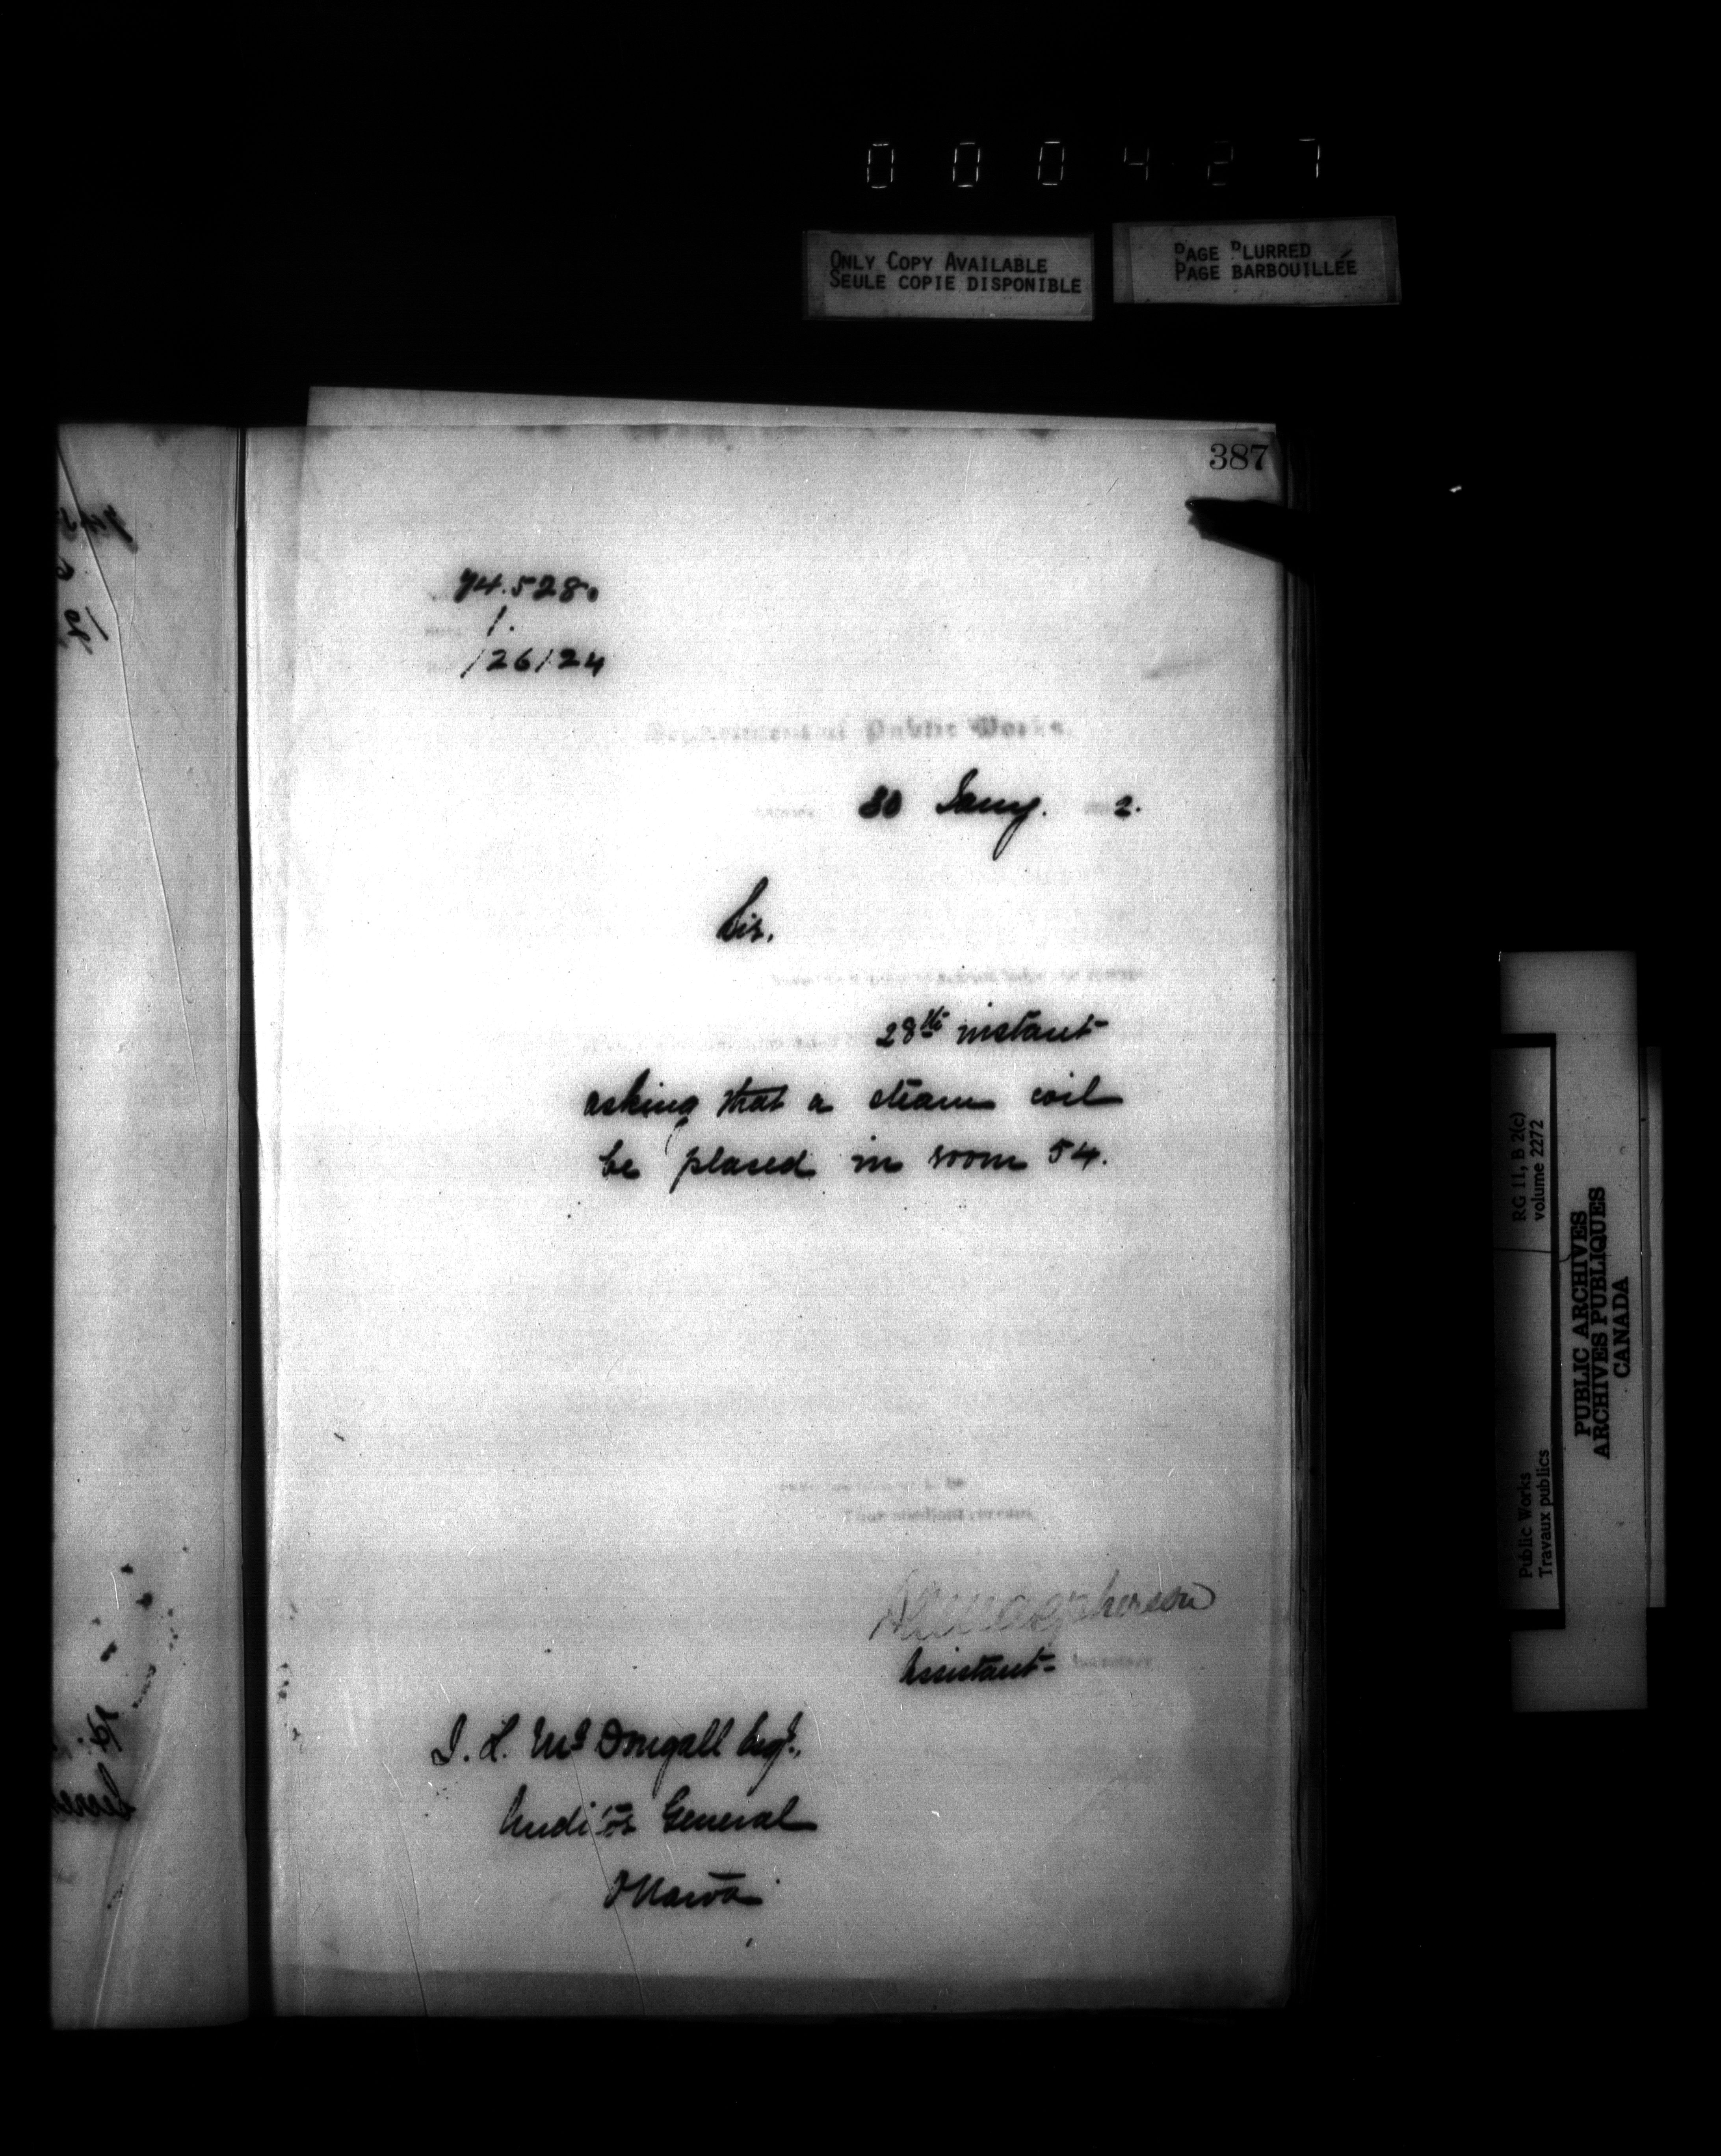 0 0 0 4 2 7
ONLY COPY AVAILABLE
SEULE COPIE DISPONIBLE
PAGE BLURRED
PAGE BARBOUILLÉE
387
74.528.
1.
126124
Department of Public Works
30 Jany. 2.
Sir,
28th instant
asking that a steam coil
be placed in room 54.
Your obedient servant
Assistant
J. L. McDougall Esqr.,
Auditor General
Ottawa
RG 11, B 2(c)
volume 2272
Public Works
Travaux publics
PUBLIC ARCHIVES
ARCHIVES PUBLIQUES
CANADA